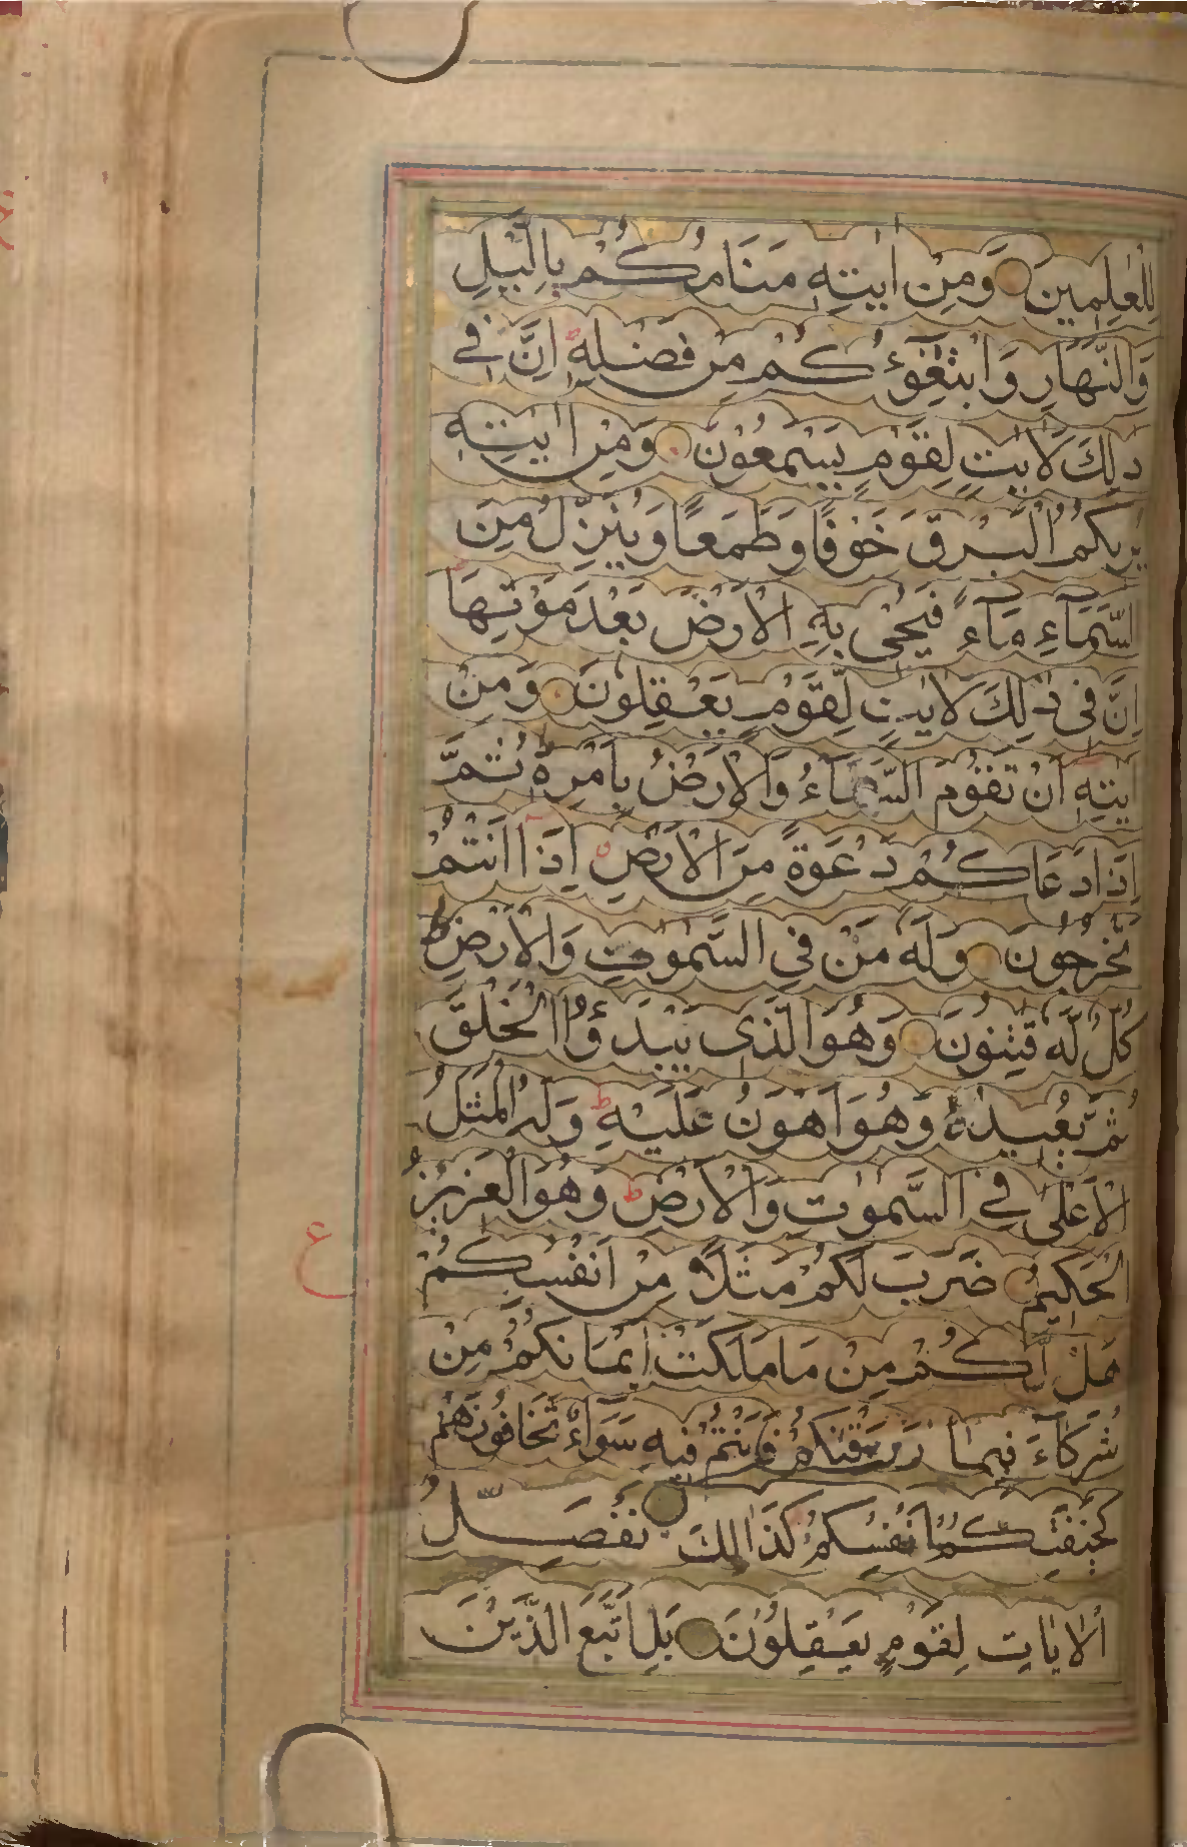 لِّلْعٰلِمِينَ وَمِنْ اٰيٰتِهٖ مَنَامُكُمْ بِالَّيْلِ
وَالنَّهَارِ وَابْتِغَآؤُكُمْ مِنْ فَضْلِهٖ ط اِنَّ فِي
ذٰلِكَ لَاٰيٰتٍ لِقَوْمٍ يَسْمَعُوْنَ وَمِنْ اٰيٰتِهٖ
يُرِيكُمُ الْبَرْقَ خَوْفًا وَطَمَعًا وَيُنَزِّلُ مِنَ
السَّمَآءِ مَآءً فَيُحْيٖ بِهِ الْاَرْضَ بَعْدَ مَوْتِهَا
اِنَّ فِي ذٰلِكَ لَاٰيٰتٍ لِّقَوْمٍ يَعْقِلُوْنَ وَمِنْ
اٰيٰتِهٖ اَنْ تَقُوْمَ السَّمَآءُ وَالْاَرْضُ بِاَمْرِهٖ ط ثُمَّ
اِذَا دَعَاكُمْ دَعْوَةً مِنَ الْاَرْضِ اِذَا اَنْتُمْ
تَخْرُجُوْنَ وَلَهٗ مَنْ فِي السَّمٰوٰتِ وَالْاَرْضِ ط
كُلٌّ لَّهٗ قٰنِتُوْنَ وَهُوَ الَّذِي يَبْدَؤُا الْخَلْقَ
ثُمَّ يُعِيْدُهٗ وَهُوَ اَهْوَنُ عَلَيْهِ ط وَلَهُ الْمَثَلُ
الْاَعْلٰى فِي السَّمٰوٰتِ وَالْاَرْضِ ط وَهُوَ الْعَزِيْزُ
الْحَكِيْمُ ضَرَبَ لَكُمْ مَثَلًا مِنْ اَنْفُسِكُمْ
ع
هَلْ لَّكُمْ مِنْ مَا مَلَكَتْ اَيْمَانُكُمْ مِنْ
شُرَكَآءَ فِيمَا رَزَقْنٰكُمْ فَاَنْتُمْ فِيْهِ سَوَآءٌ تَخَافُوْنَهُمْ
كَخِيفَتِكُمْ اَنْفُسَكُمْ كَذَالِكَ نُفَصِّلُ
الْاٰيَاتِ لِقَوْمٍ يَعْقِلُوْنَ بَلِ اتَّبَعَ الَّذِيْنَ